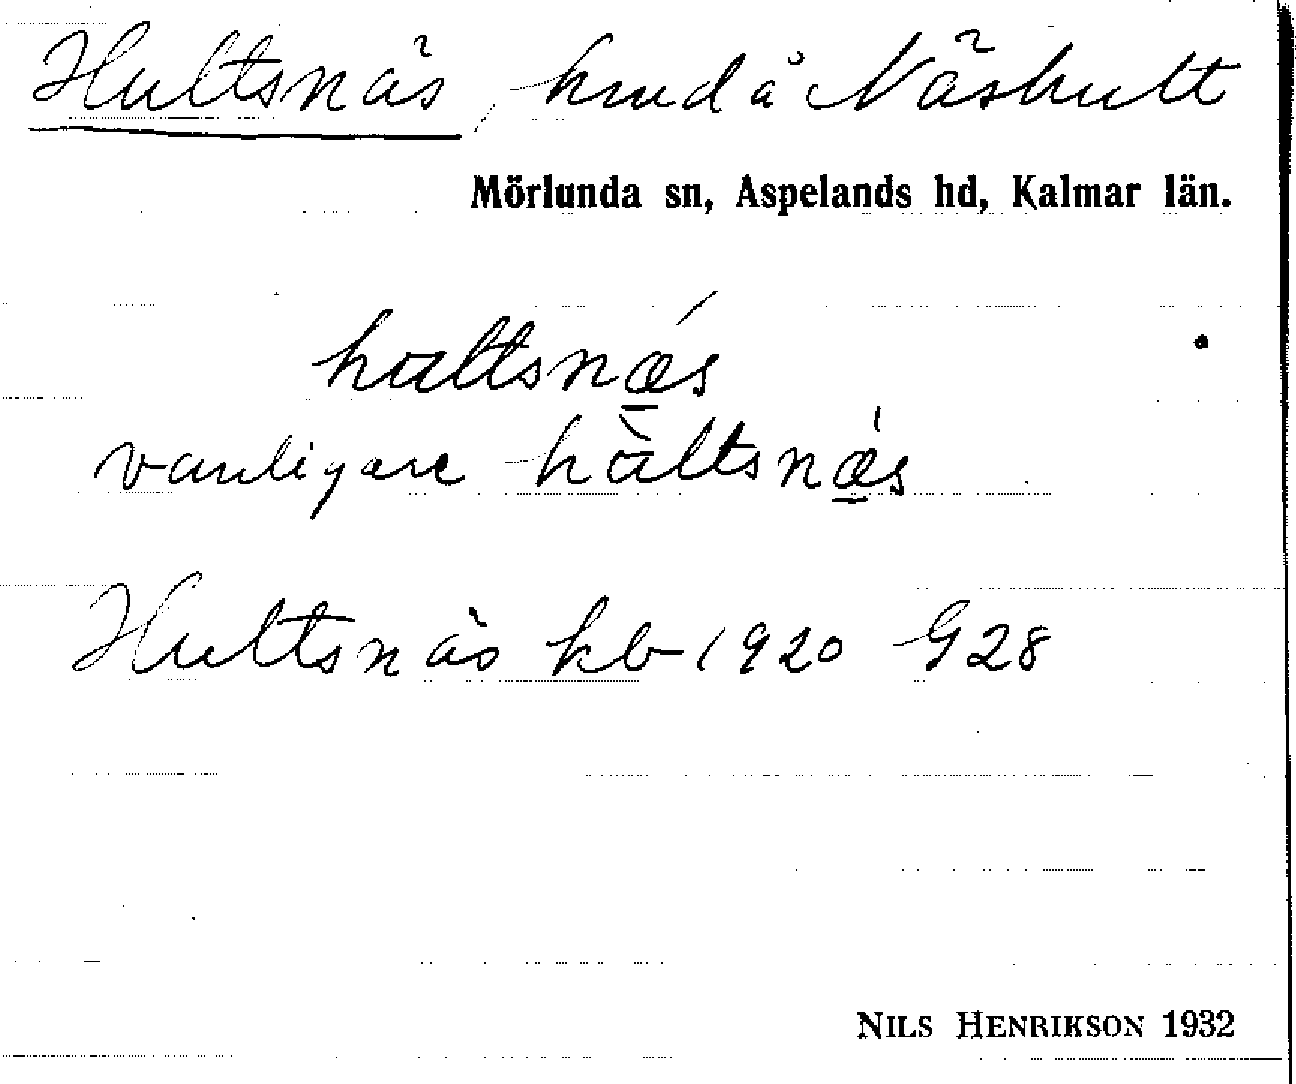 Hultsnäs, hmd å Näshult
Mörlunda sn, Aspelands hd, Kalmar län.
hαltsnǽ̲s
vanligare hὰltsnǽ̲s
Hultsnäs kb 1920 G28
NILS HENRIKSON 1932